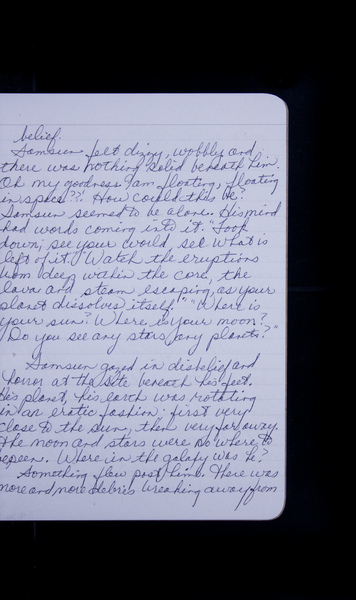 belief.
Samsun felt dizzy, wobbly and
there was nothing solid beneath him.
Oh my goodness I am floating, floating
in space??! How could this be?
Samsun seemed to be alone. His mind
had words coming into it. "Look
down, see your world, see what is
left of it. Watch the eruptions
from deep within the core, the
lava and steam escaping, as your
planet dissolves itself." "Where is
your sun? Where is your moon?
Do you see any stars, any plants?"
Samsun gazed in disbelief and
horror at the site beneath his feet.
His planet, his earth was rotating
in an eratic fashion: first very
close to the sun, then very far away.
The moon and stars were no where to
be seen. Where in the galaxy was he?
Something flew past him. There was
more and more debris breaking away from